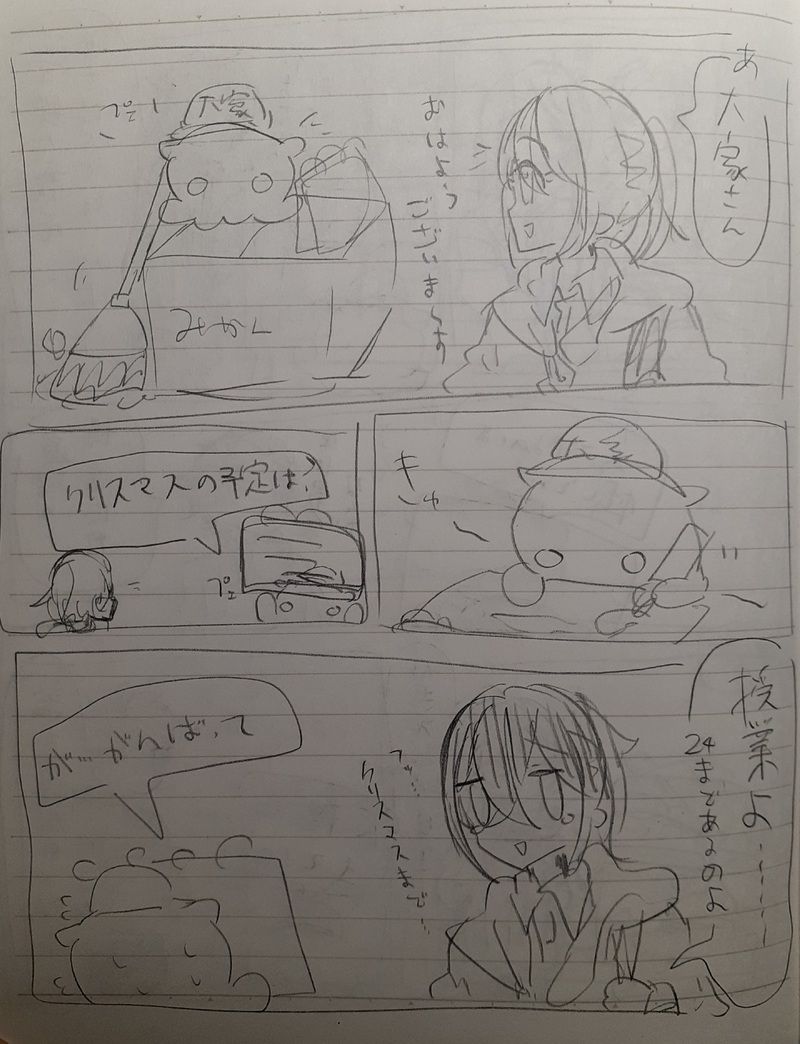 あ
大家さん
おはよう
ございます
大家
みかん
大家
キ
クリスマスの予定は?
授業よ……
24まであるのよ
クリスマスまで…
が…がんばって